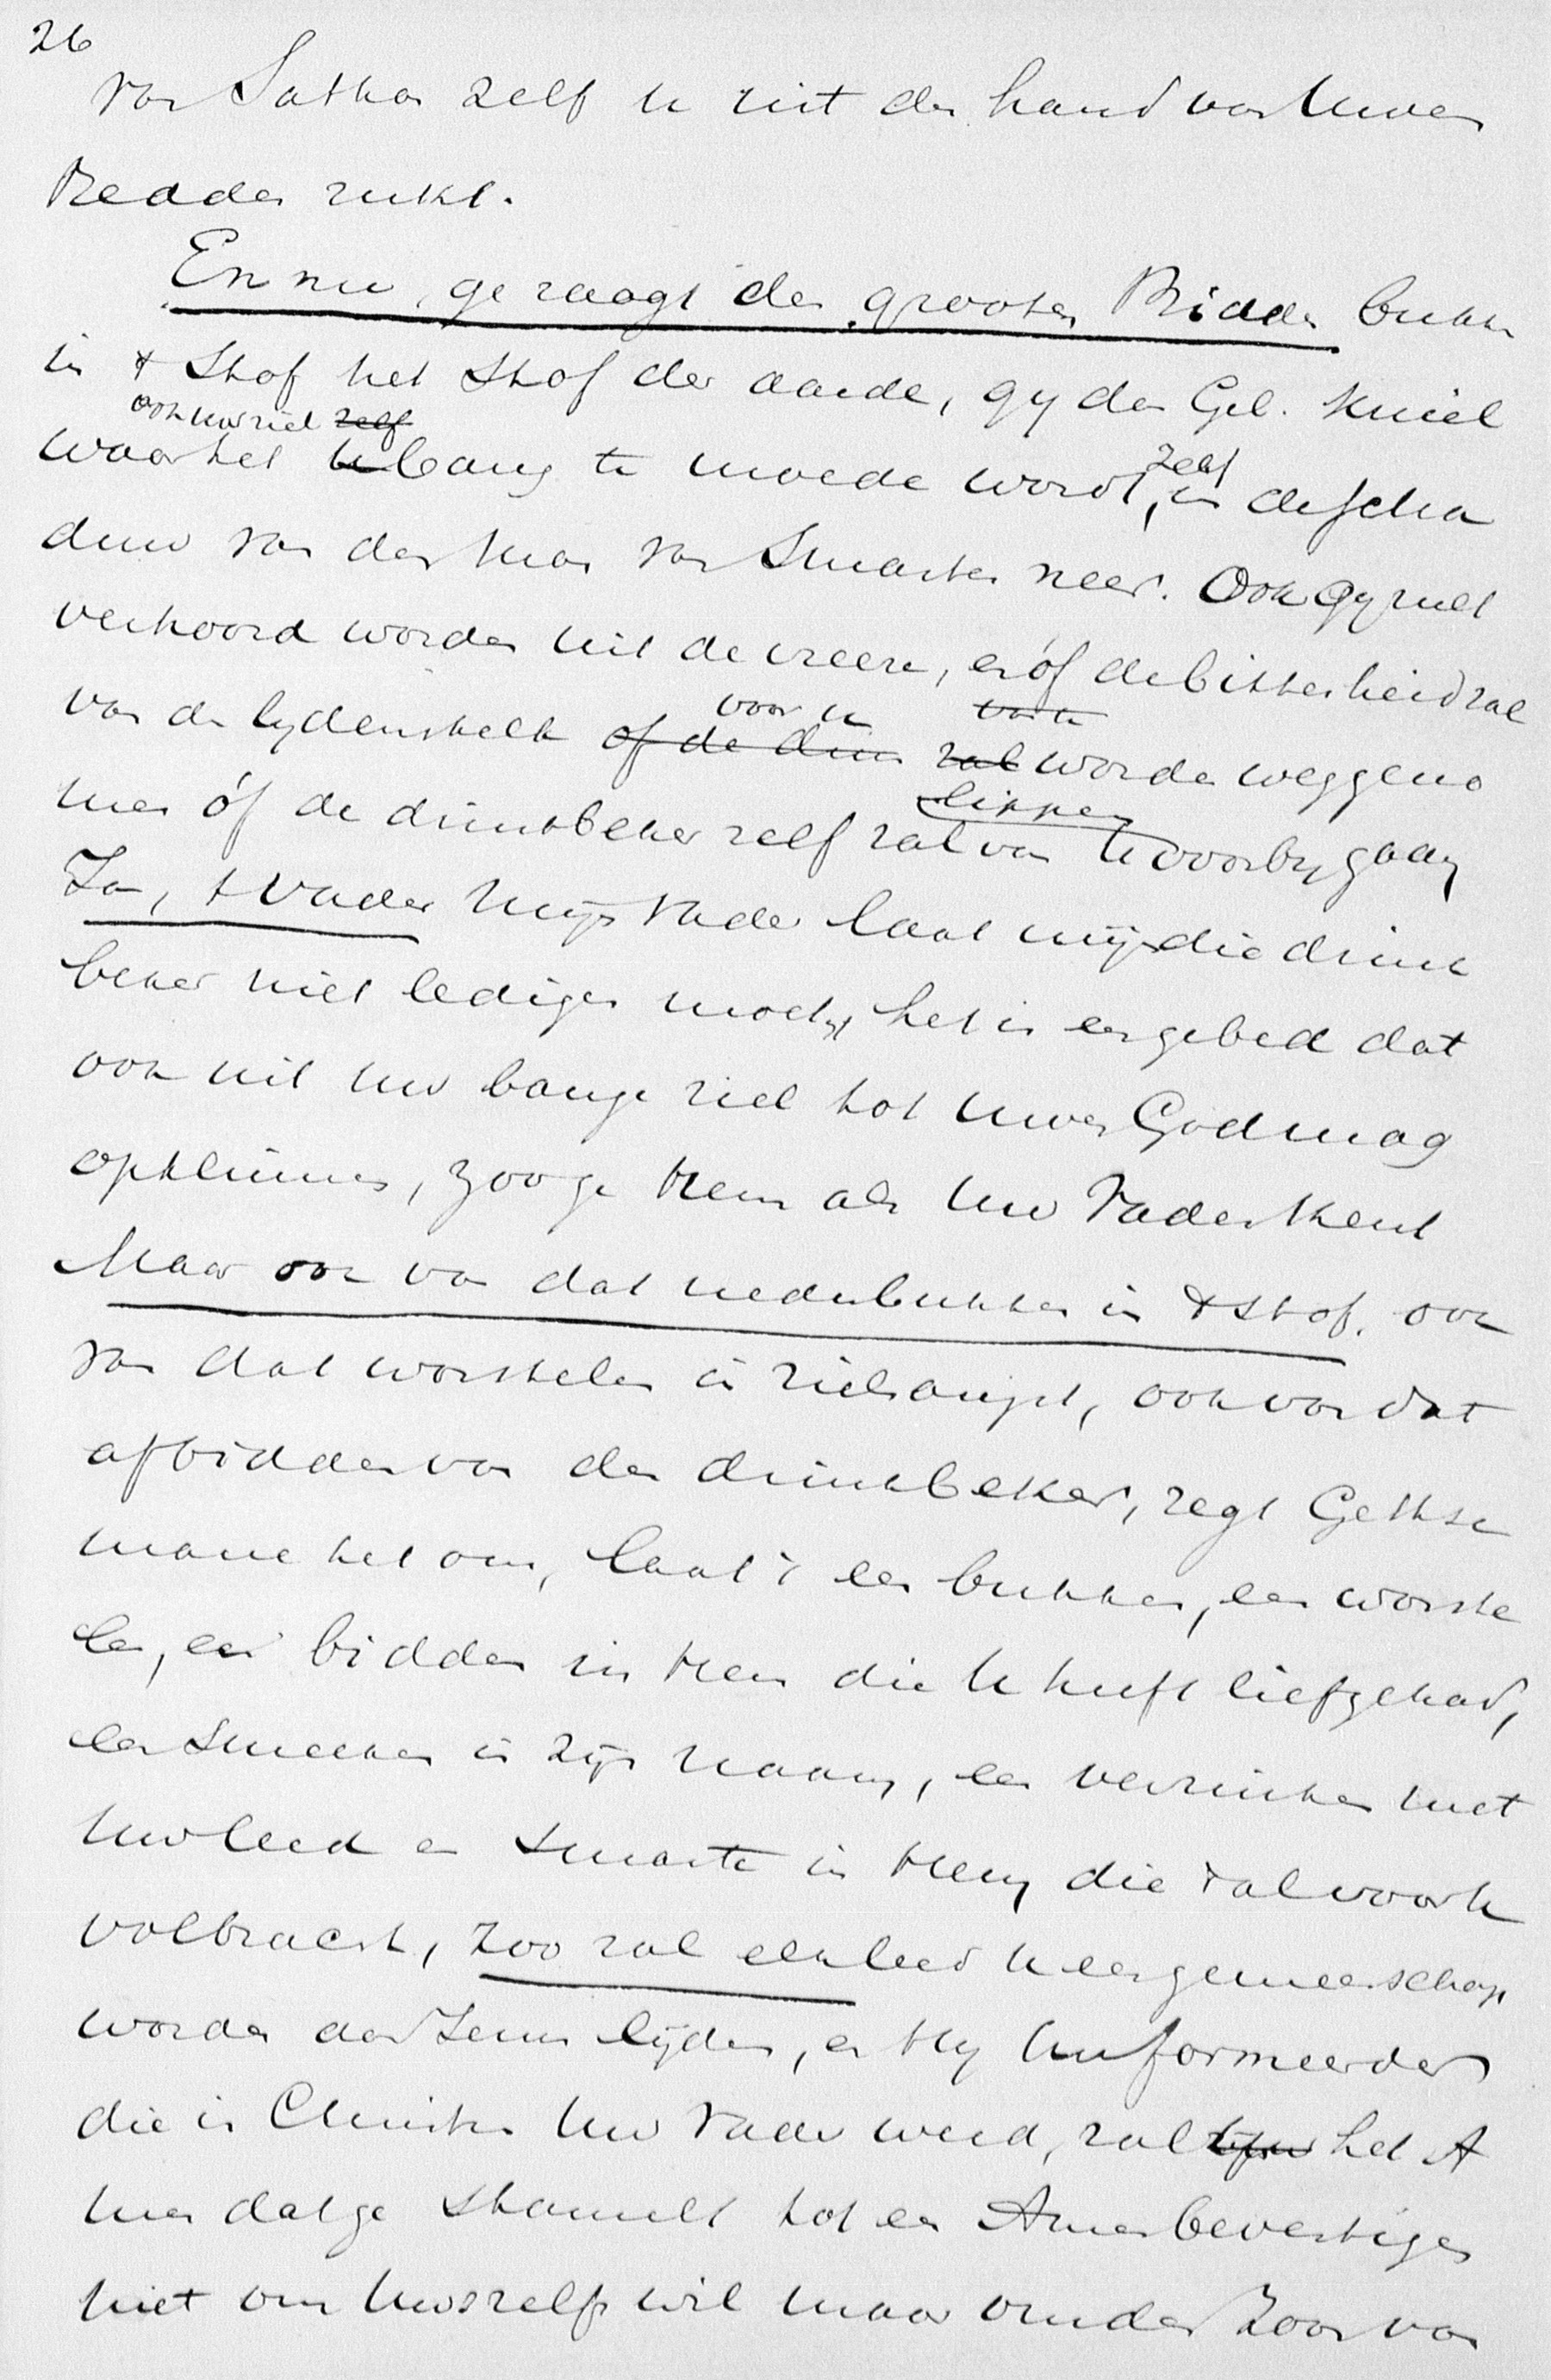 26
van Sathan zelf u uit de hand van Uwen
Redder rukt.
En nu, ge zaagt den grooten Bidder bukken
in 't Stof het Stof der aarde, gy den Gel. kniel
ook uw ziel zelf
waar het U bang te moede wordt, zelf in de scha
duw van den Man van Smarten neer. Ook gy zult
verhoord worden uit de vreeze, en óf de bitterheid zal
voor u van u
van de lydenskelk of de drin zal worden weggeno
lippen
men óf de drinkbeker zelf zal van U voorby gaan
Ja, 't Vader Mijn Vader laat mij die drink
beker niet ledigen moet, het is een gebed dat
ook uit uw bange ziel tot Uwen God mag
opklimmen, zoo ge Hem als Uw Vader kent
Maar ook van dat nederbukken in 't Stof, ook
van dat worstelen in zielsangst, ook van dat
afbidden van den drinkbeker, zegt Gethse
mane het ons, laat 't een bukken, een worste
len, een bidden in Hem die U heeft liefgehad,
een Smeeken in zijn naam, een verzinken met
Uw leed en smarte in Hem die 't al voor U
volbracht, Zoo zal elk leed U een gemeenschap
worden aan Jezus lijden, en Hy Uw formeerder
die in Christus Uw Vader werd, zal het A
men dat ge stamelt tot een Amen bevestigen
niet om Uws zelfs wil maar om den Zoon van